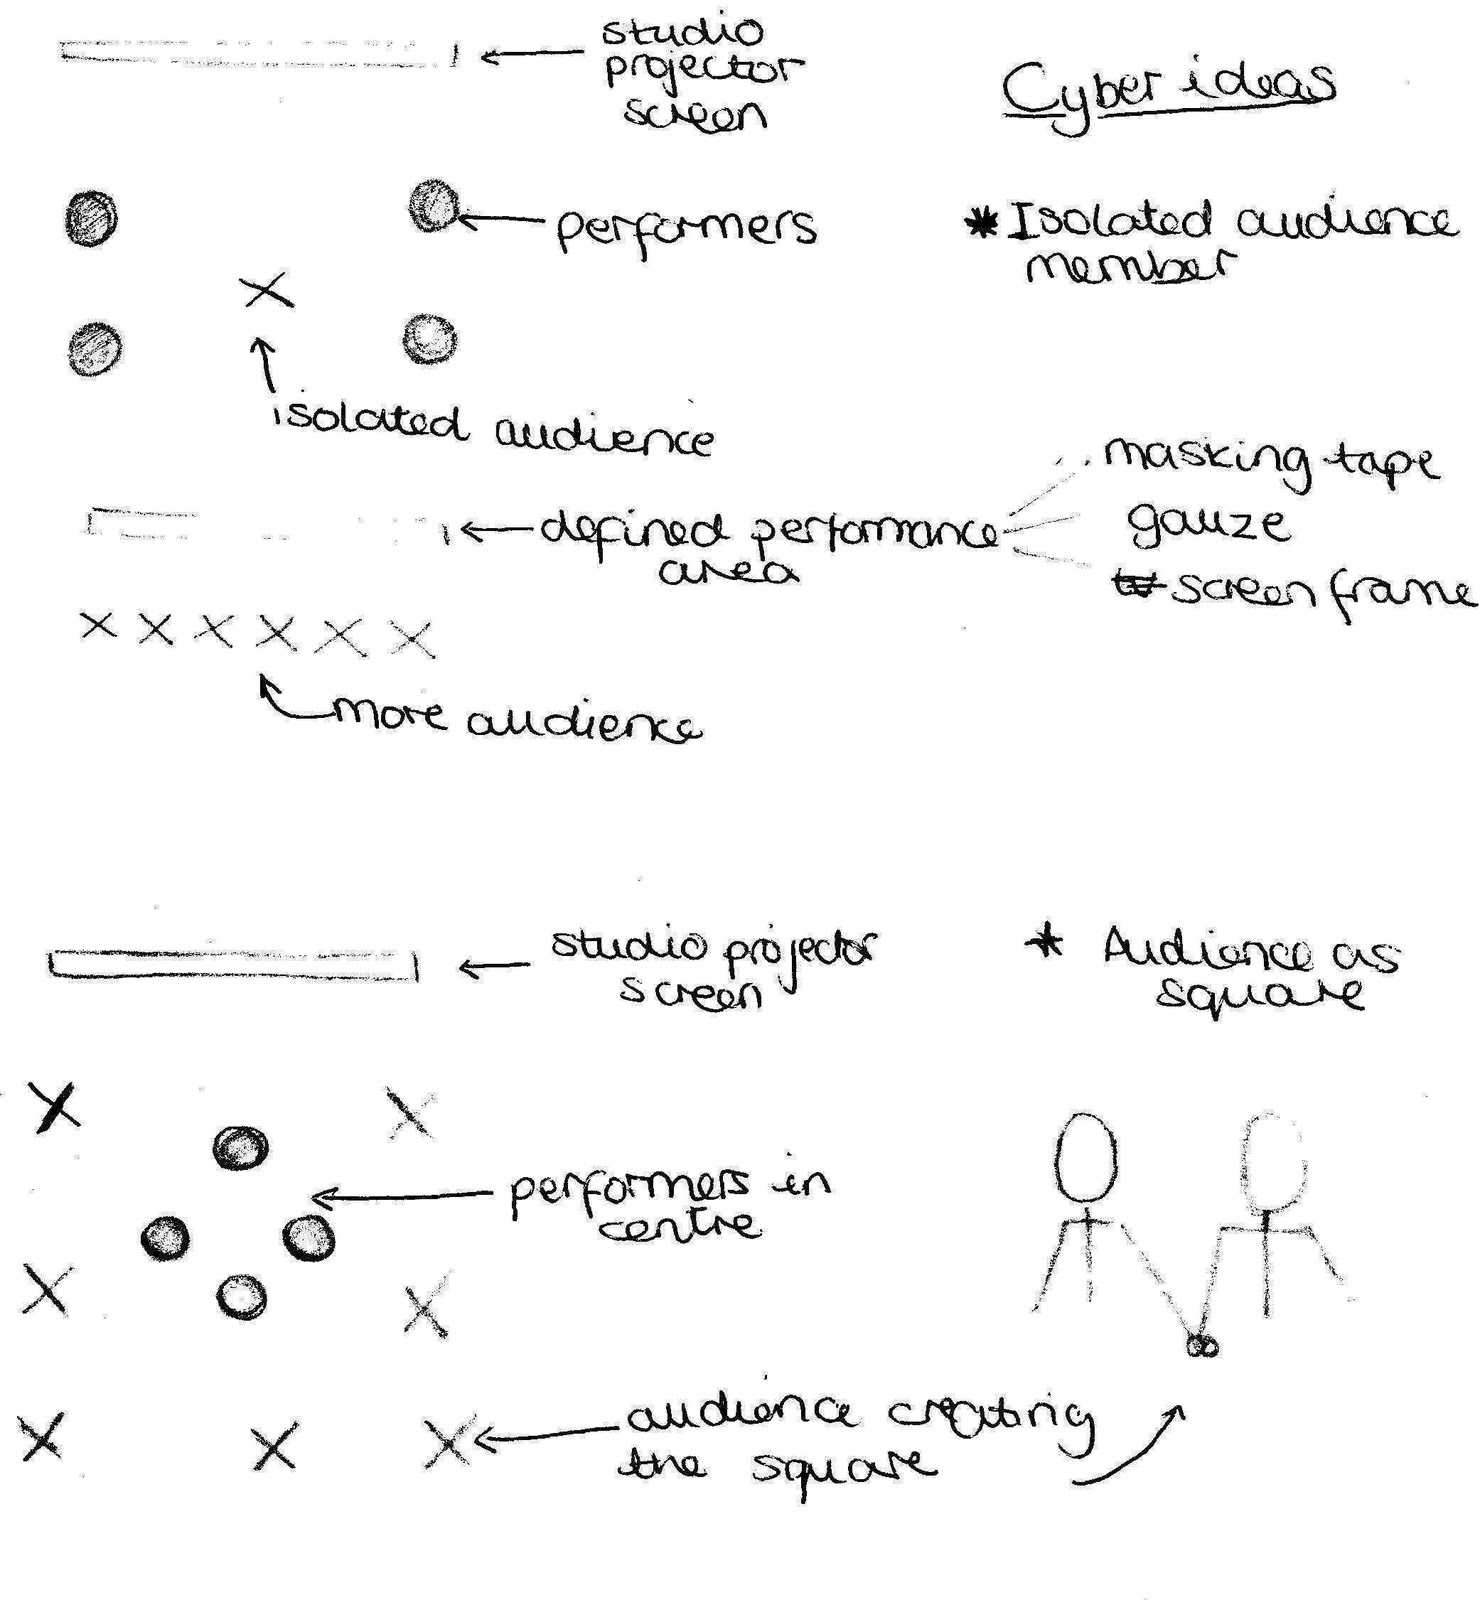 studio
projector
screen
Cyber ideas
performers
* Isolated audience
member
isolated audience
defined performance
area
masking tape
gauze
screen frame
more audience
studio projector
screen
* Audience as
square
performers in
centre
audience creating
the square